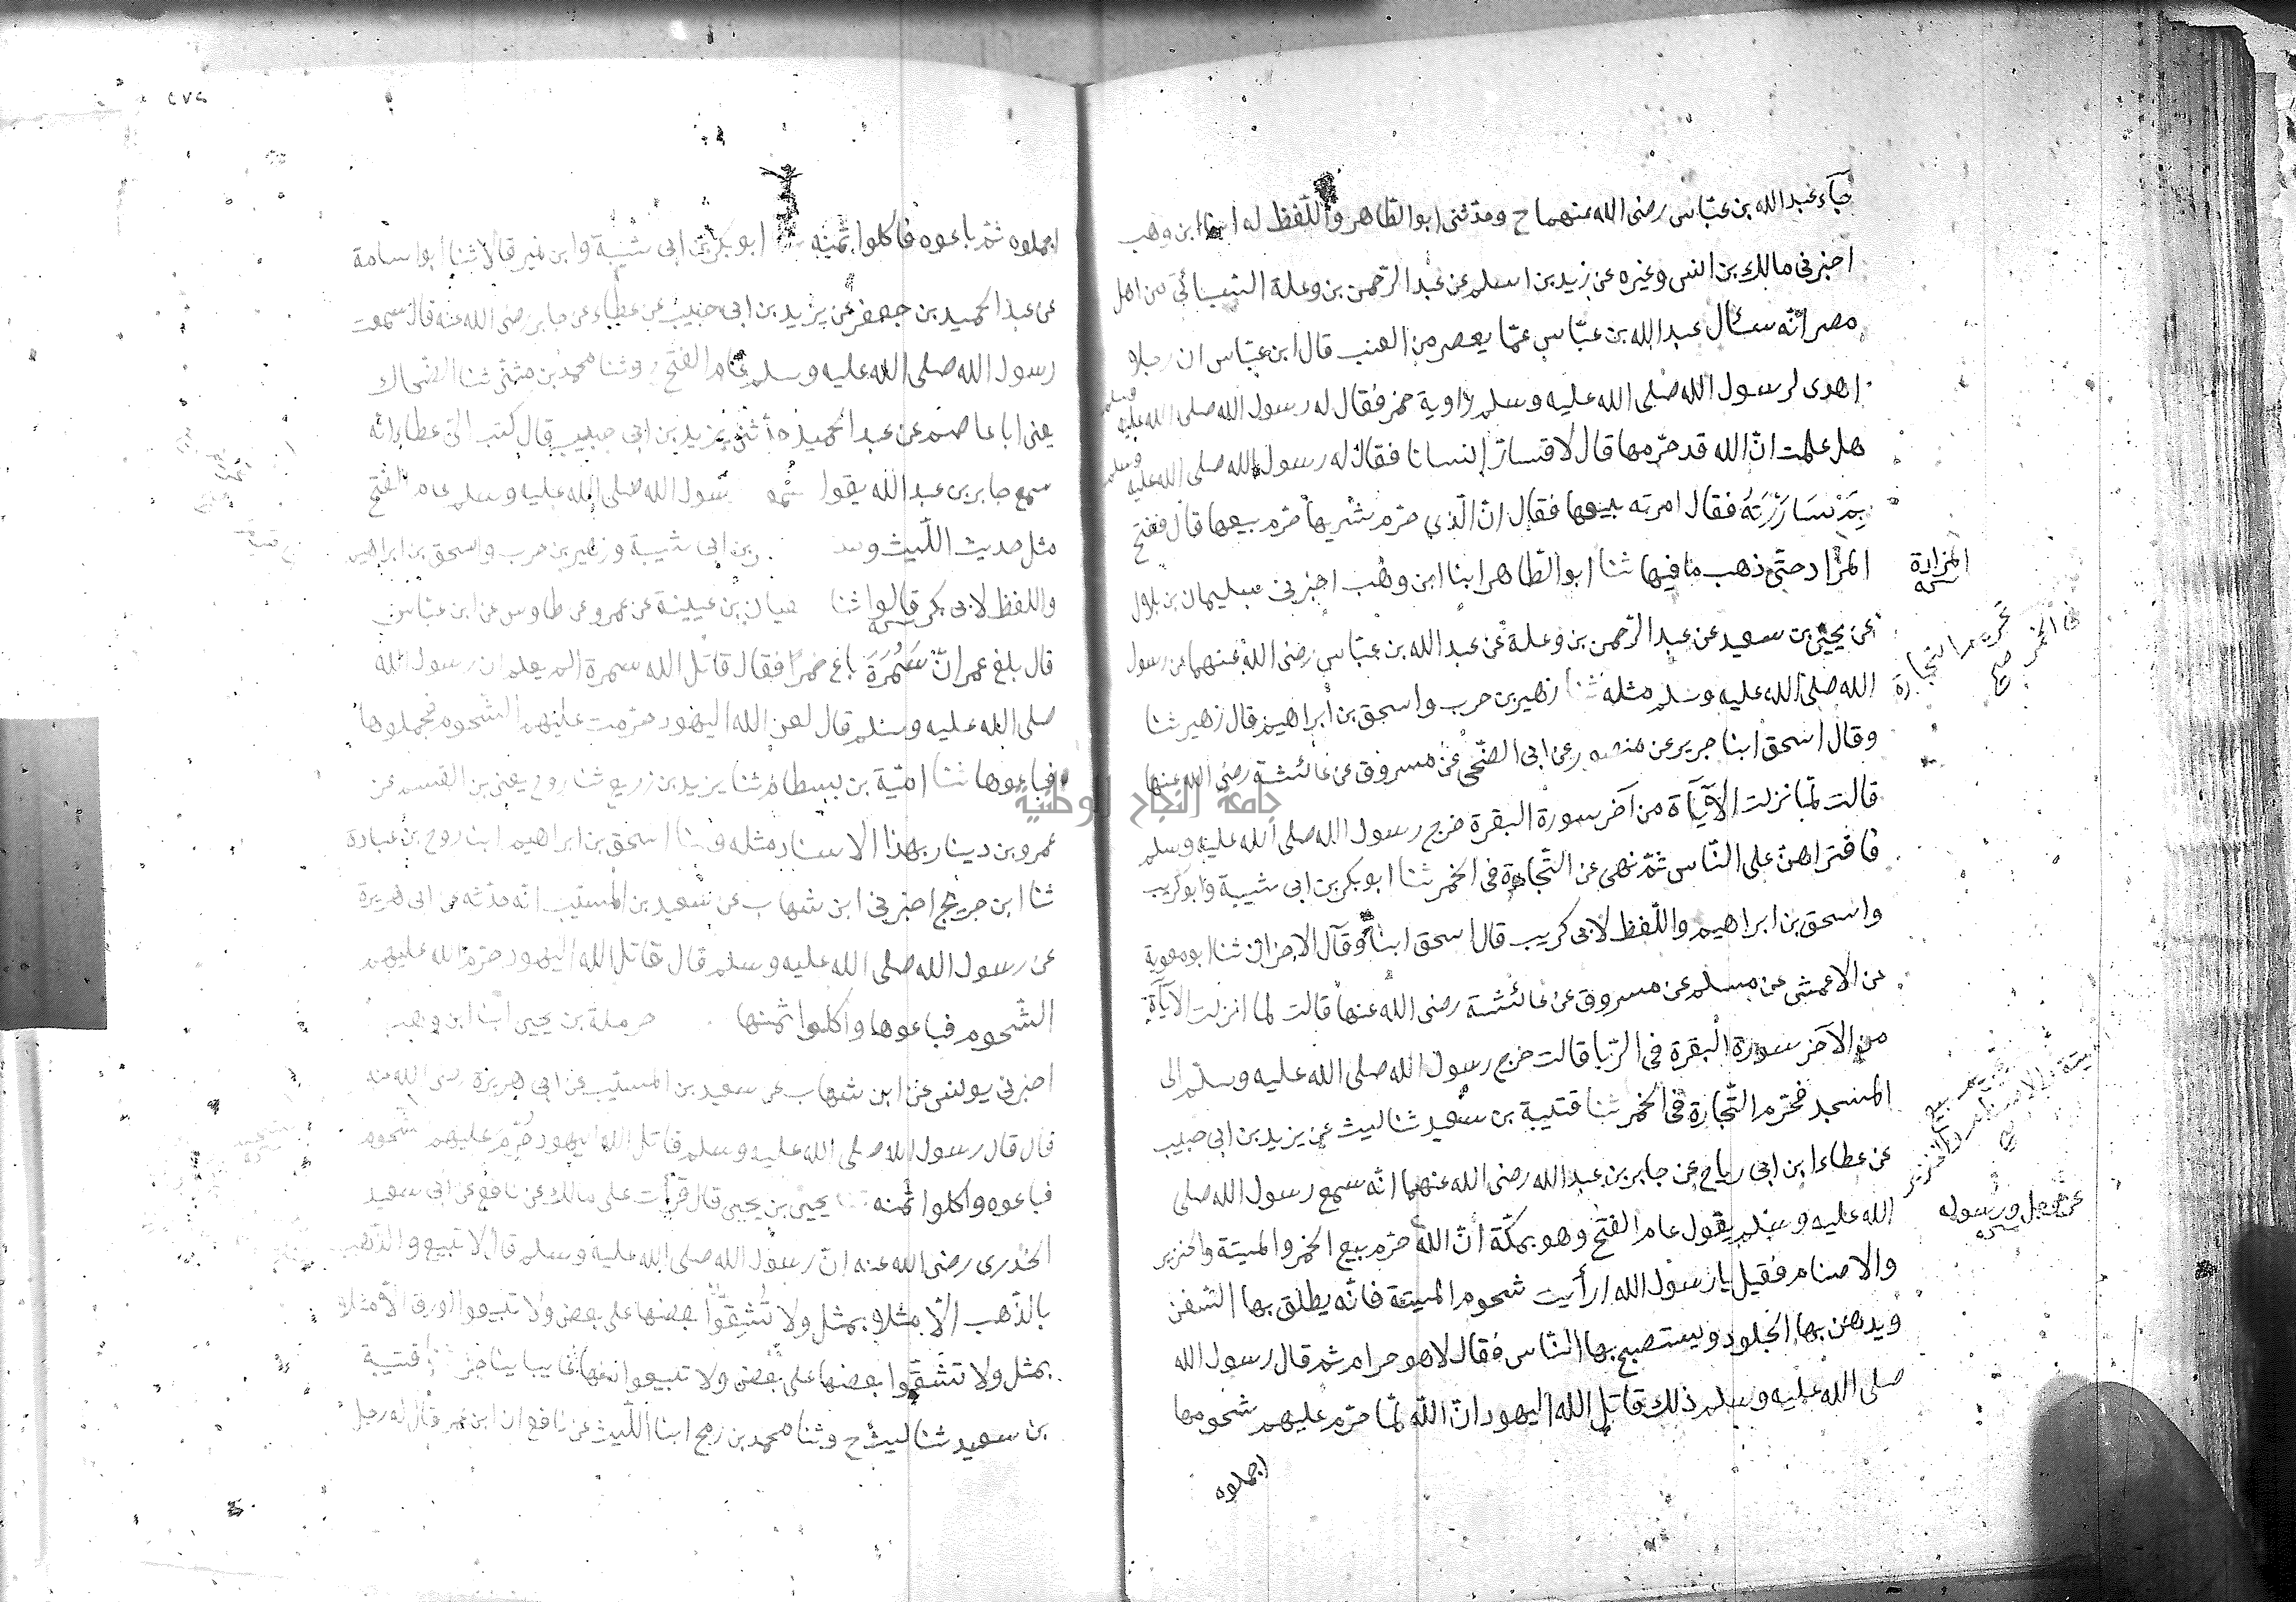 جاء عبد الله بن عباس رضى الله عنهما ح وحدثنى ابو الطاهر واللفظ له ابنا ابن وهب
اخبرنى مالك بن انس وغيره عن زيد بن اسلم عن عبد الرحمن بن وعلة السبائى من اهل
مصر انه سئال عبد الله بن عباس عمّا يعصر من العنب قال ابن عباس ان رجلا
اهدى لرسول الله صلى الله عليه وسلم راوية خمر فقال له رسول الله صلى الله عليه وسلم
هل علمت انّ الله قد حرّمها قال لا فسارّ انسانا فقال له رسول الله صلى الله عليه وسلم
بِمَ سَارَرْتَهُ فقال امرته ببيعها فقال انّ الّذى حرّم شربها حرّم بيعها قال ففتح
المزاد حتى ذهب ما فيها ثنا ابو الطاهر ابنا ابن وهب اخبرنى سليمان بن بلال
المزادة
عن يحيى بن سعيد عن عبد الرّحمن بن وعلة عن عبد الله بن عبّاس رضى الله عنهما عن رسول
تحريم التجارة
فى الخمر
الله صلى الله عليه وسلم مثله ثنا زهير بن حرب واسحق بن ابراهيم قال زهير ثنا
وقال اسحق ابنا جرير عن منصور عن ابى الضّحى عن مسروق عن عائشة رضى الله عنها
قالت لمّا نزلت الآيآة من آخر سورة البقرة خرج رسول الله صلى الله عليه وسلم
فاقتراهنّ على النّاس ثمّ نهى عن التّجارة فى الخمر ثنا ابو بكر بن ابى شيبة وابو كريب
واسحق بن ابراهيم واللّفظ لابى كريب قال اسحق ابنا وقال الاخران ثنا ابو معوية
عن الاعمش عن مسلم عن مسروق عن عائشة رضى الله عنها قالت لما انزلت الآيآة
من الآخر سورة البقرة فى الرّبا قالت خرج رسول الله صلى الله عليه وسلّم الى
المسجد فحرّم التّجارة فى الخمر ثنا قتيبة بن سعيد ثنا ليث عن يزيد بن ابى حبيب
تحريم بيع
عن عطاء ابن ابى رباح عن جابر بن عبد الله رضى الله عنهما انّه سمع رسول الله صلى
الله عليه وسلم يقول عام الفتح وهو بمكّة انّ الله حرّم بيع الخمر والميتة والخنزير
عزّ وجل ورسوله
والاصنام فقيل يا رسول الله ارأيت شحوم الميتة فانّه يطلق بها السّفن
ويدهن بها الجلود ويستصبح بها النّاس فقال لا هو حرام ثم قال رسول الله
صلى الله عليه وسلم ذلك قاتل الله اليهود انّ الله لمّا حرّم عليهم شحومها
اجملوه
اجملوه ثمّ باعوه فاكلوا ثمنه ابو بكر بن ابى شيبة وابن نمير قالا ثنا ابو اسامة
عن عبد الحميد بن جعفر عن يزيد بن ابى حبيب عن عطاء عن جابر رضى الله عنه قال سمعت
رسول الله صلى الله عليه وسلم عام الفتح وثنا محمد بن مثنّى ثنا الضّحاك
يعنى ابا عاصم عن عبد الحميد حدّثنى يزيد بن ابى حبيب قال كتب الىّ عطاء انّه
سمع جابر بن عبد الله يقول رسول الله صلى الله عليه وسلم عام الفتح
مثل حديث اللّيث بن ابى شيبة وزهير بن حرب واسحق بن ابراهيم
واللفظ لابى بكر قالوا ثنا بن عيينة عن عمرو عن طاوس عن ابن عبّاس
قال بلغ عمر انّ سَمُرَةَ باع خمرًا فقال قاتل الله سمرة الم يعلم ان رسول الله
صلى الله عليه وسلم قال لعن الله اليهود حرّمت عليهم الشّحوم فجملوها
فباعوها ثنا اميّة بن بسطام ثنا يزيد بن زريع ثنا روح يعنى بن القسم عن
جامعة النجاح الوطنية
عمرو بن دينار بهذا الاسناد مثله وثنا اسحق بن ابراهيم ابنا روح بن عبادة
ثنا ابن جريج اخبرنى ابن شهاب عن سعيد بن المسيّب انّه حدّثه عن ابى هريرة
عن رسول الله صلى الله عليه وسلم قال قاتل الله اليهود حرّم الله عليهم
الشّحوم فباعوها واكلوا ثمنها حرملة بن يحيى ابنا ابن وهب
اخبرنى يونس عن ابن شهاب عن سعيد بن المسيّب عن ابى هريرة رضى الله عنه
قال قال رسول الله صلى الله عليه وسلم قاتل الله اليهود حُرّم عليهم شحوم
فباعوه واكلوا ثمنه يحيى بن يحيى قال قرأت على مالك عن نافع عن ابى سعيد
الخدرى رضى الله عنه انّ رسول الله صلى الله عليه وسلم قال لا تبيعوا الذّهب
بالذّهب الّا مثلا بمثل ولا تُشِفّوا بعضها على بعض ولا تبيعوا الورق الّا مثلا
بمثل ولا تشفّوا بعضها على بعض ولا تبيعوا منها غايبا بناجز قتيبة
بن سعيد ثنا ليث ح وثنا محمد بن رمح ابنا اللّيث عن نافع ان ابن عمر قال له رجل